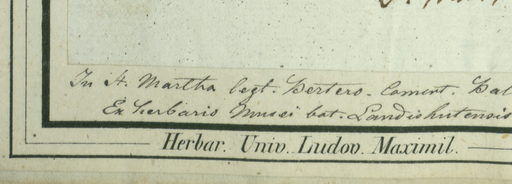 In St. Martha legt. Bertero. Comm. Bal
Ex herbario Musei bot. Landishutensis
Herbar. Univ. Ludov. Maximil.